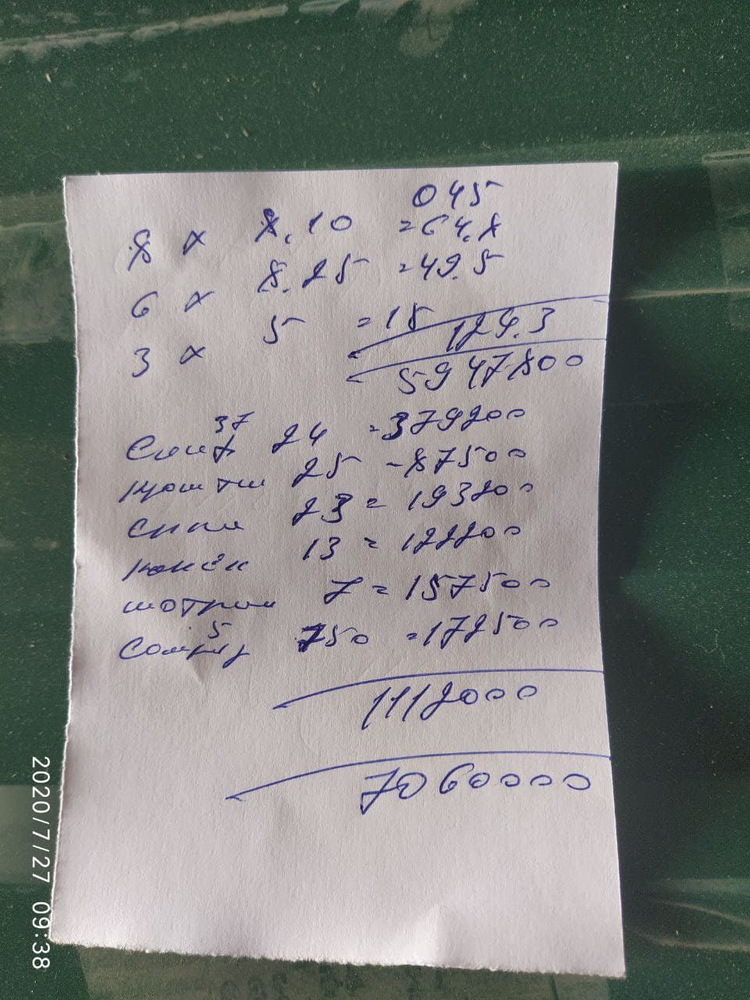 045
8 x 8.10 =64.8
6 x 8.25 =49.5
3 x 5 =15
129.3
5947800
37
24 =379200
25 -87500
23 = 193200
13 = 122200
7 = 157500
5
750 =172500
1112000
7060000
2020/7/27 09:38